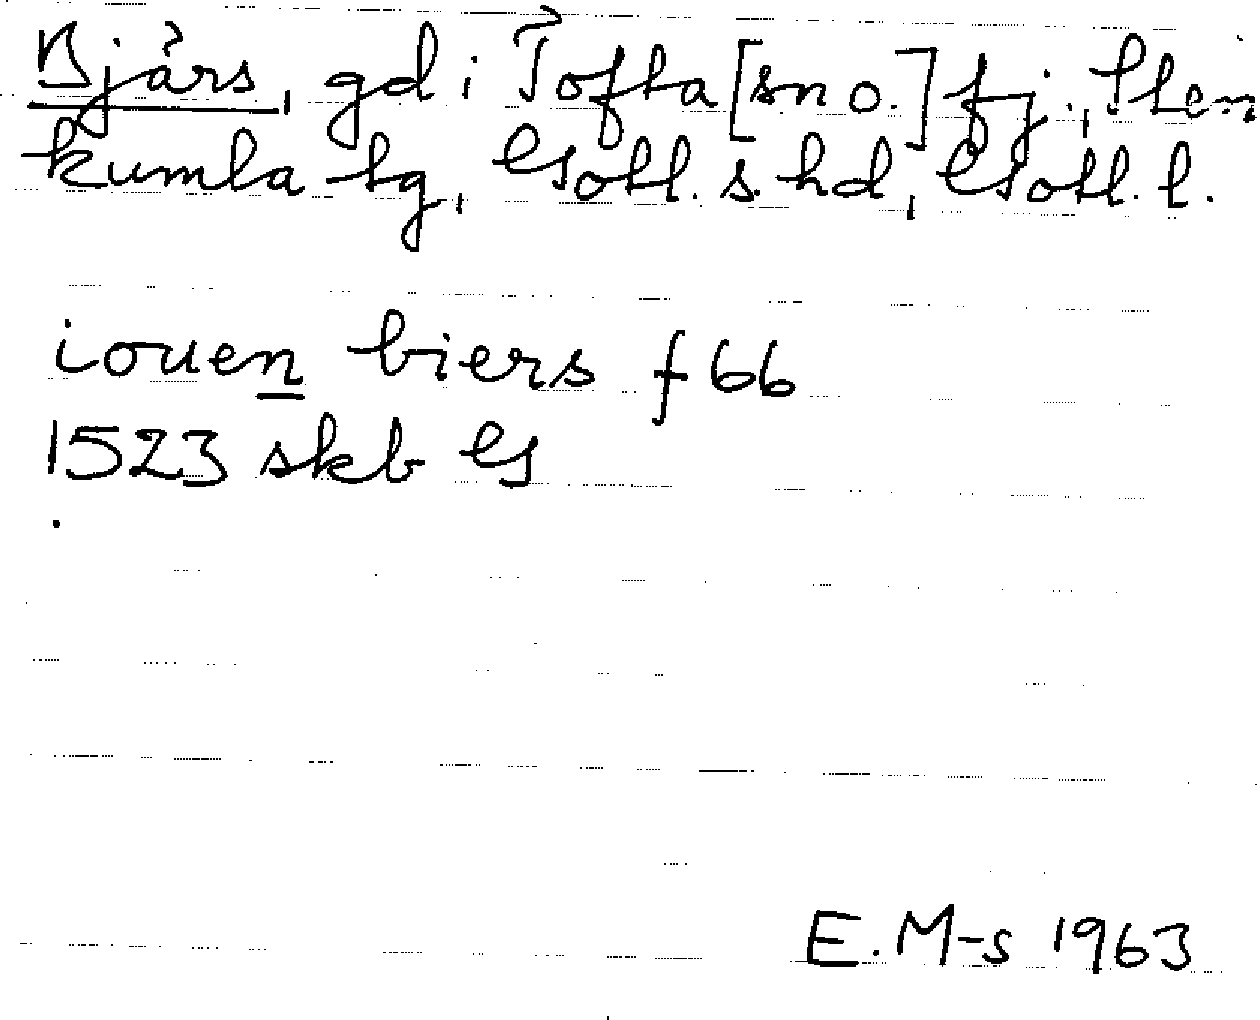 Bjärs, gd i Tofta [sn o.] fj., Sten
kumla tg, Gotl. s. hd, Gotl. l.
iouen biers f 66
1523 skb G
E. M-s 1963